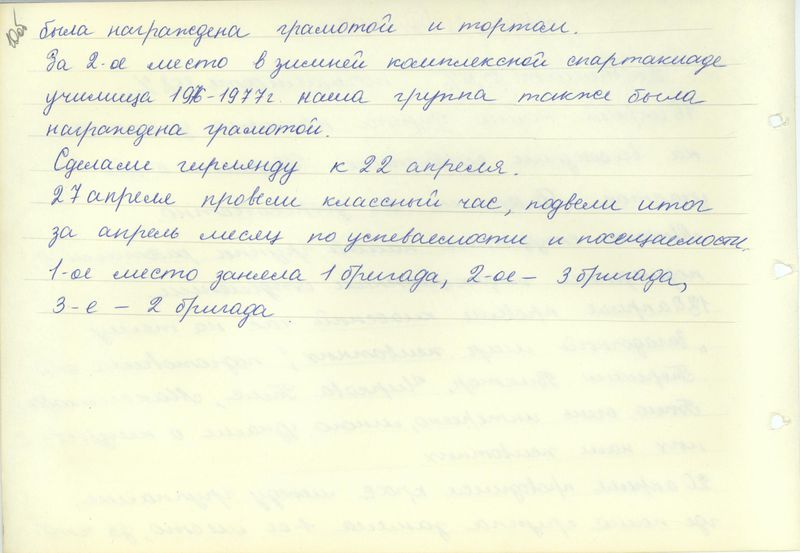 10об
была награждена грамотой и тортом.
За 2-ое место в зимней комплексной спартакиаде
училища 1976-1977г. наша группа также была
награждена грамотой.
Сделали гирлянду к 22 апреля.
27 апреля провели классный час, подвели итог
за апрель месяц по успеваемости и посещаемости.
1-ое место заняла 1 бригада, 2-ое – 3 бригада,
3-е – 2 бригада